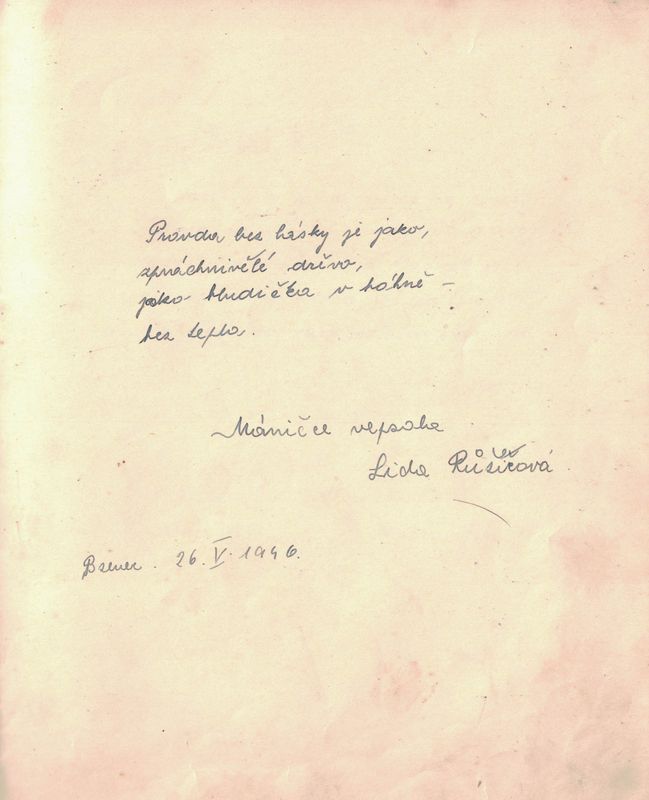 Pravda bez lásky je jako,
zpuchnivělé dřívo,
jako bludička v báhně –
bez tepla.
Máničce vepsala
Lida Růžičková
Bzenec. 26. V. 1946.